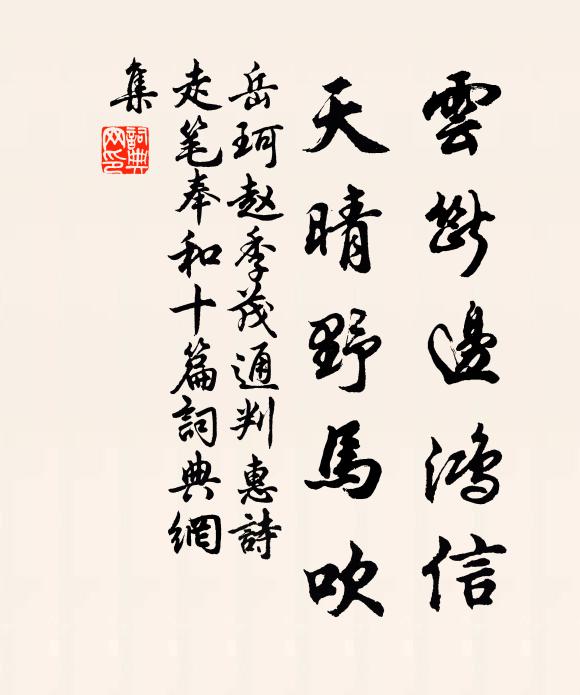 雲斷邊鴻信
天晴野馬吹
岳珂赵季茂通判惠詩
走笔奉和十篇詞典網
集
詞典
网印